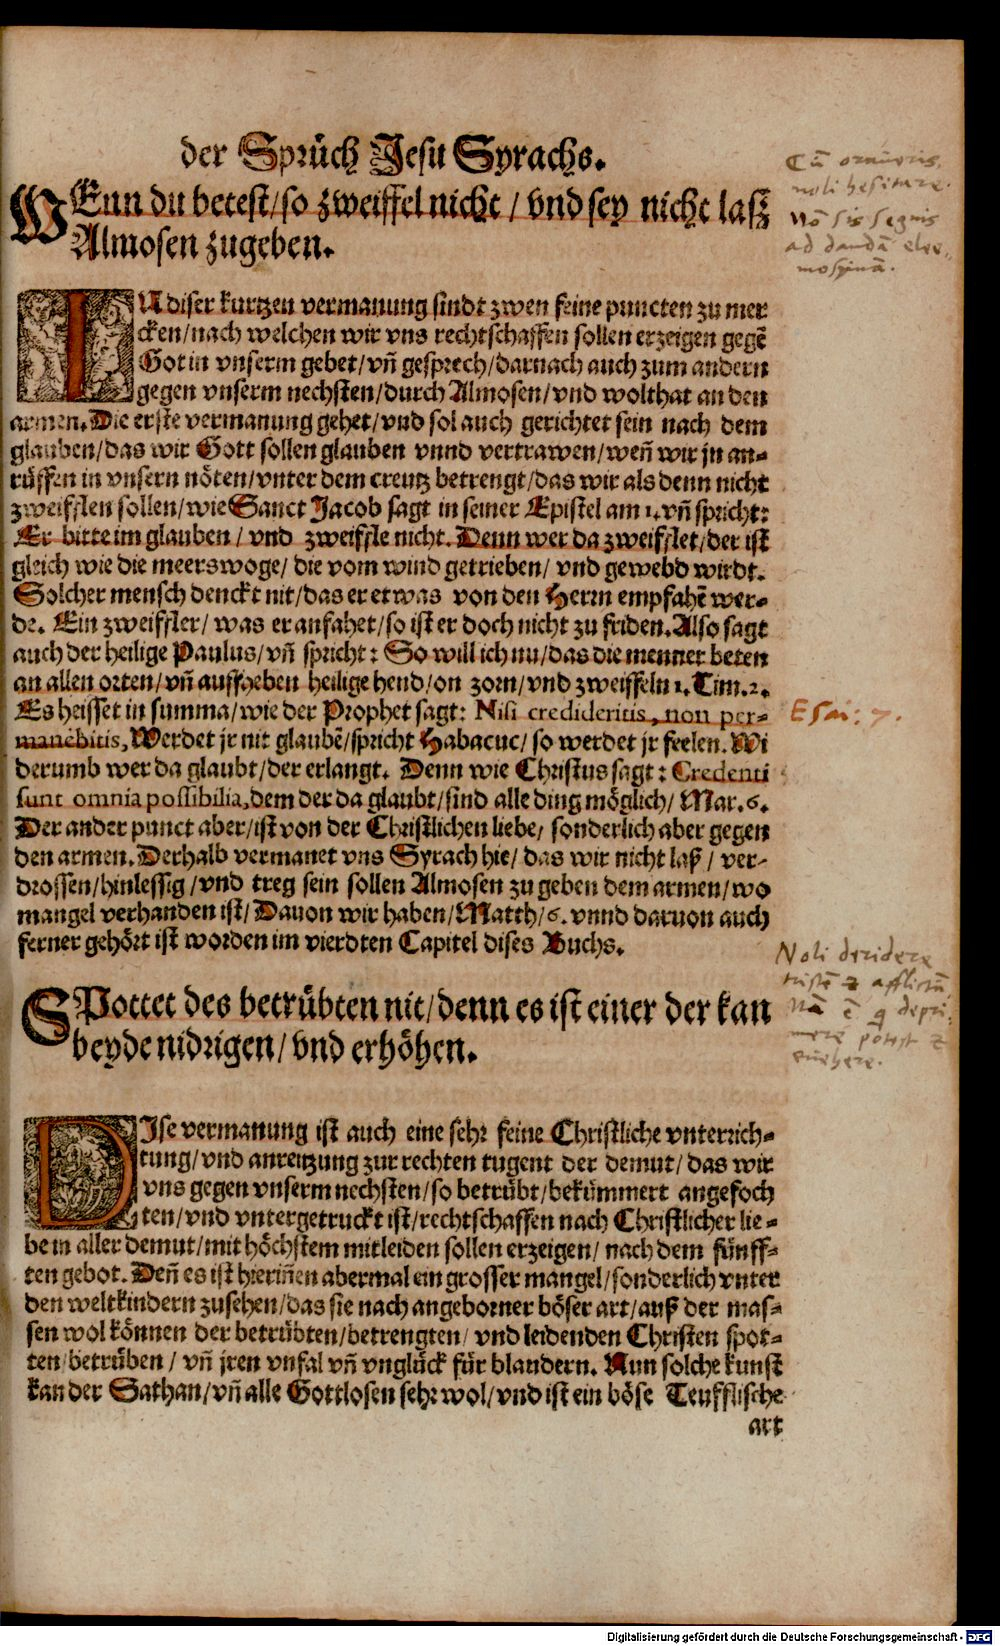 der Sprüch Jesu Syrachs.
WEnn du betest/so zweiffel nicht / vnd sey nicht lasz
Almosen zugeben.
IN diser kurtzen vermanung sindt zwen feine puncten zu mer
cken/nach welchen wir vns rechtschaffen sollen erzeigen gegē
Got in vnserm gebet/vñ gesprech/darnach auch zum andern
gegen vnserm nechsten/durch Almosen/vnd wolthat an den
armen. Die erste vermanung gehet/vnd sol auch gerichtet sein nach dem
glauben/das wir Gott sollen glauben vnnd vertrawen/weñ wir jn an-
rüffen in vnsern nöten/vnter dem creutz betrengt/das wir als denn nicht
zweifflen sollen/wie Sanct Jacob sagt in seiner Epistel am 1. vñ spricht:
Er bitte im glauben / vnd zweiffle nicht. Denn wer da zweifflet/der ist
gleich wie die meerswoge/ die vom wind getrieben/ vnd gewebd wirdt.
Solcher mensch denckt nit/das er etwas von den Herrn empfahē wer-
de. Ein zweiffler/ was er anfahet/so ist er doch nicht zu friden. Also sagt
auch der heilige Paulus/vñ spricht: So will ich nu/das die menner beten
an allen orten/vñ auffheben heilige hend/on zorn/vnd zweiffeln 1. Tim. 2.
Es heisset in summa/wie der Prophet sagt: Nisi credideritis, non per-
manebitis, Werdet jr nit glaubē/spricht Habacuc/ so werdet jr feelen. Wi
derumb wer da glaubt/der erlangt. Denn wie Christus sagt: Credenti
sunt omnia possibilia, dem der da glaubt/sind alle ding möglich/ Mar. 6.
Der ander punct aber/ist von der Christlichen liebe/ sonderlich aber gegen
den armen. Derhalb vermanet vns Syrach hie/ das wir nicht laß / ver-
drossen/hinlessig/vnd treg sein sollen Almosen zu geben dem armen/wo
mangel verhanden ist/ Dauon wir haben/Matth/6. vnnd daruon auch
ferner gehört ist worden im vierdten Capitel dises Buchs.
SPottet des betrübten nit/denn es ist einer der kan
beyde nidrigen/ vnd erhöhen.
DIse vermanung ist auch eine sehr feine Christliche vnterrich-
tung/vnd anreitzung zur rechten tugent der demut/das wir
vns gegen vnserm nechsten/so betrübt/bekümmert angefoch
ten/vnd vntergetruckt ist/rechtschaffen nach Christlicher lie-
be in aller demut/mit höchstem mitleiden sollen erzeigen/ nach dem fünff-
ten gebot. Deñ es ist hieriñen abermal ein grosser mangel/sonderlich vnter
den weltkindern zusehen/das sie nach angeborner böser art/auß der mas-
sen wol können der betrübten/betrengten/ vnd leidenden Christen spot-
ten/betrüben / vñ jren vnfal vñ vnglück für blandern. Nun solche kunst
kan der Sathan/vñ alle Gottlosen sehr wol/vnd ist ein böse Teufflische
art
Cū oraueris
noli hesitare.
Nō sis segnis
ad dandā elee-
mosynā.
Esai: 7.
Noli deridere
tristē & afflictū
Nā ē q depri-
mere potest &
euehere.
Digitalisierung gefördert durch die Deutsche Forschungsgemeinschaft - DFG